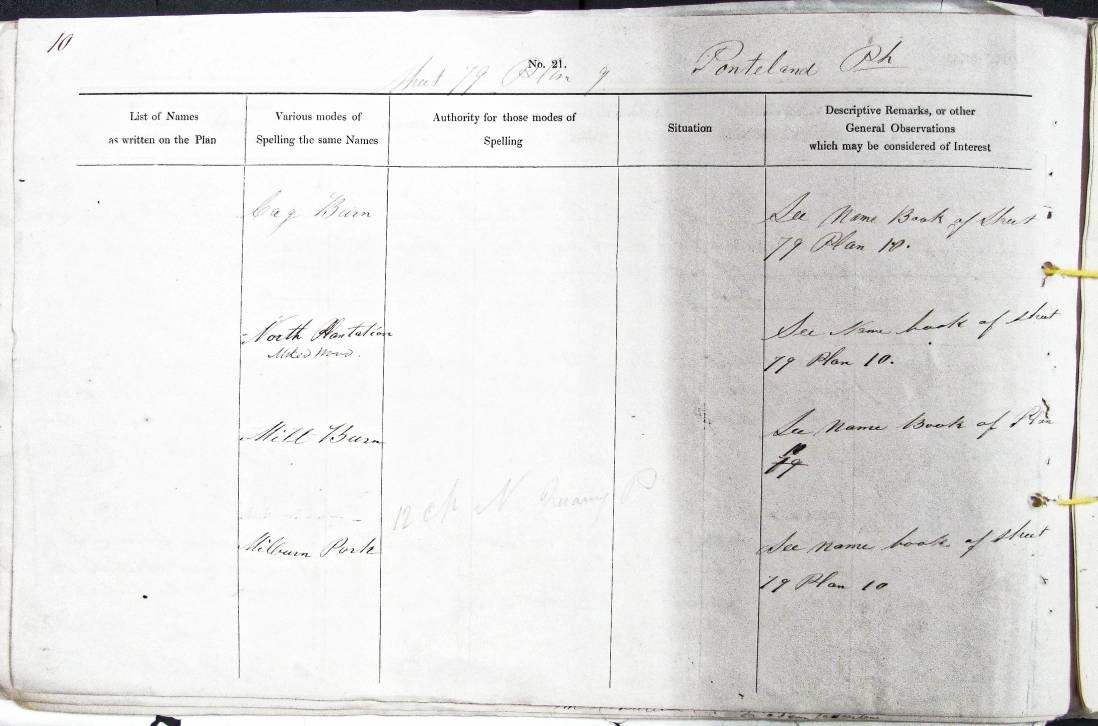 10
No. 21.
Sheet 79 Plan 9
Ponteland Ph
List of Names
as written on the Plan
Various modes of
Spelling the same Names
Authority for those modes of
Spelling
Situation
Descriptive Remarks, or other
General Observations
which may be considered of Interest
Cag Burn
See Name Book of Sheet
79 Plan 10.
North Plantation
Mixed Wood.
See Name book of Sheet
79 Plan 10.
Mill Burn
See Name Book of Plan
10
79
12 ch N Quarry P
Milburn Park
See name book of Sheet
79 Plan 10